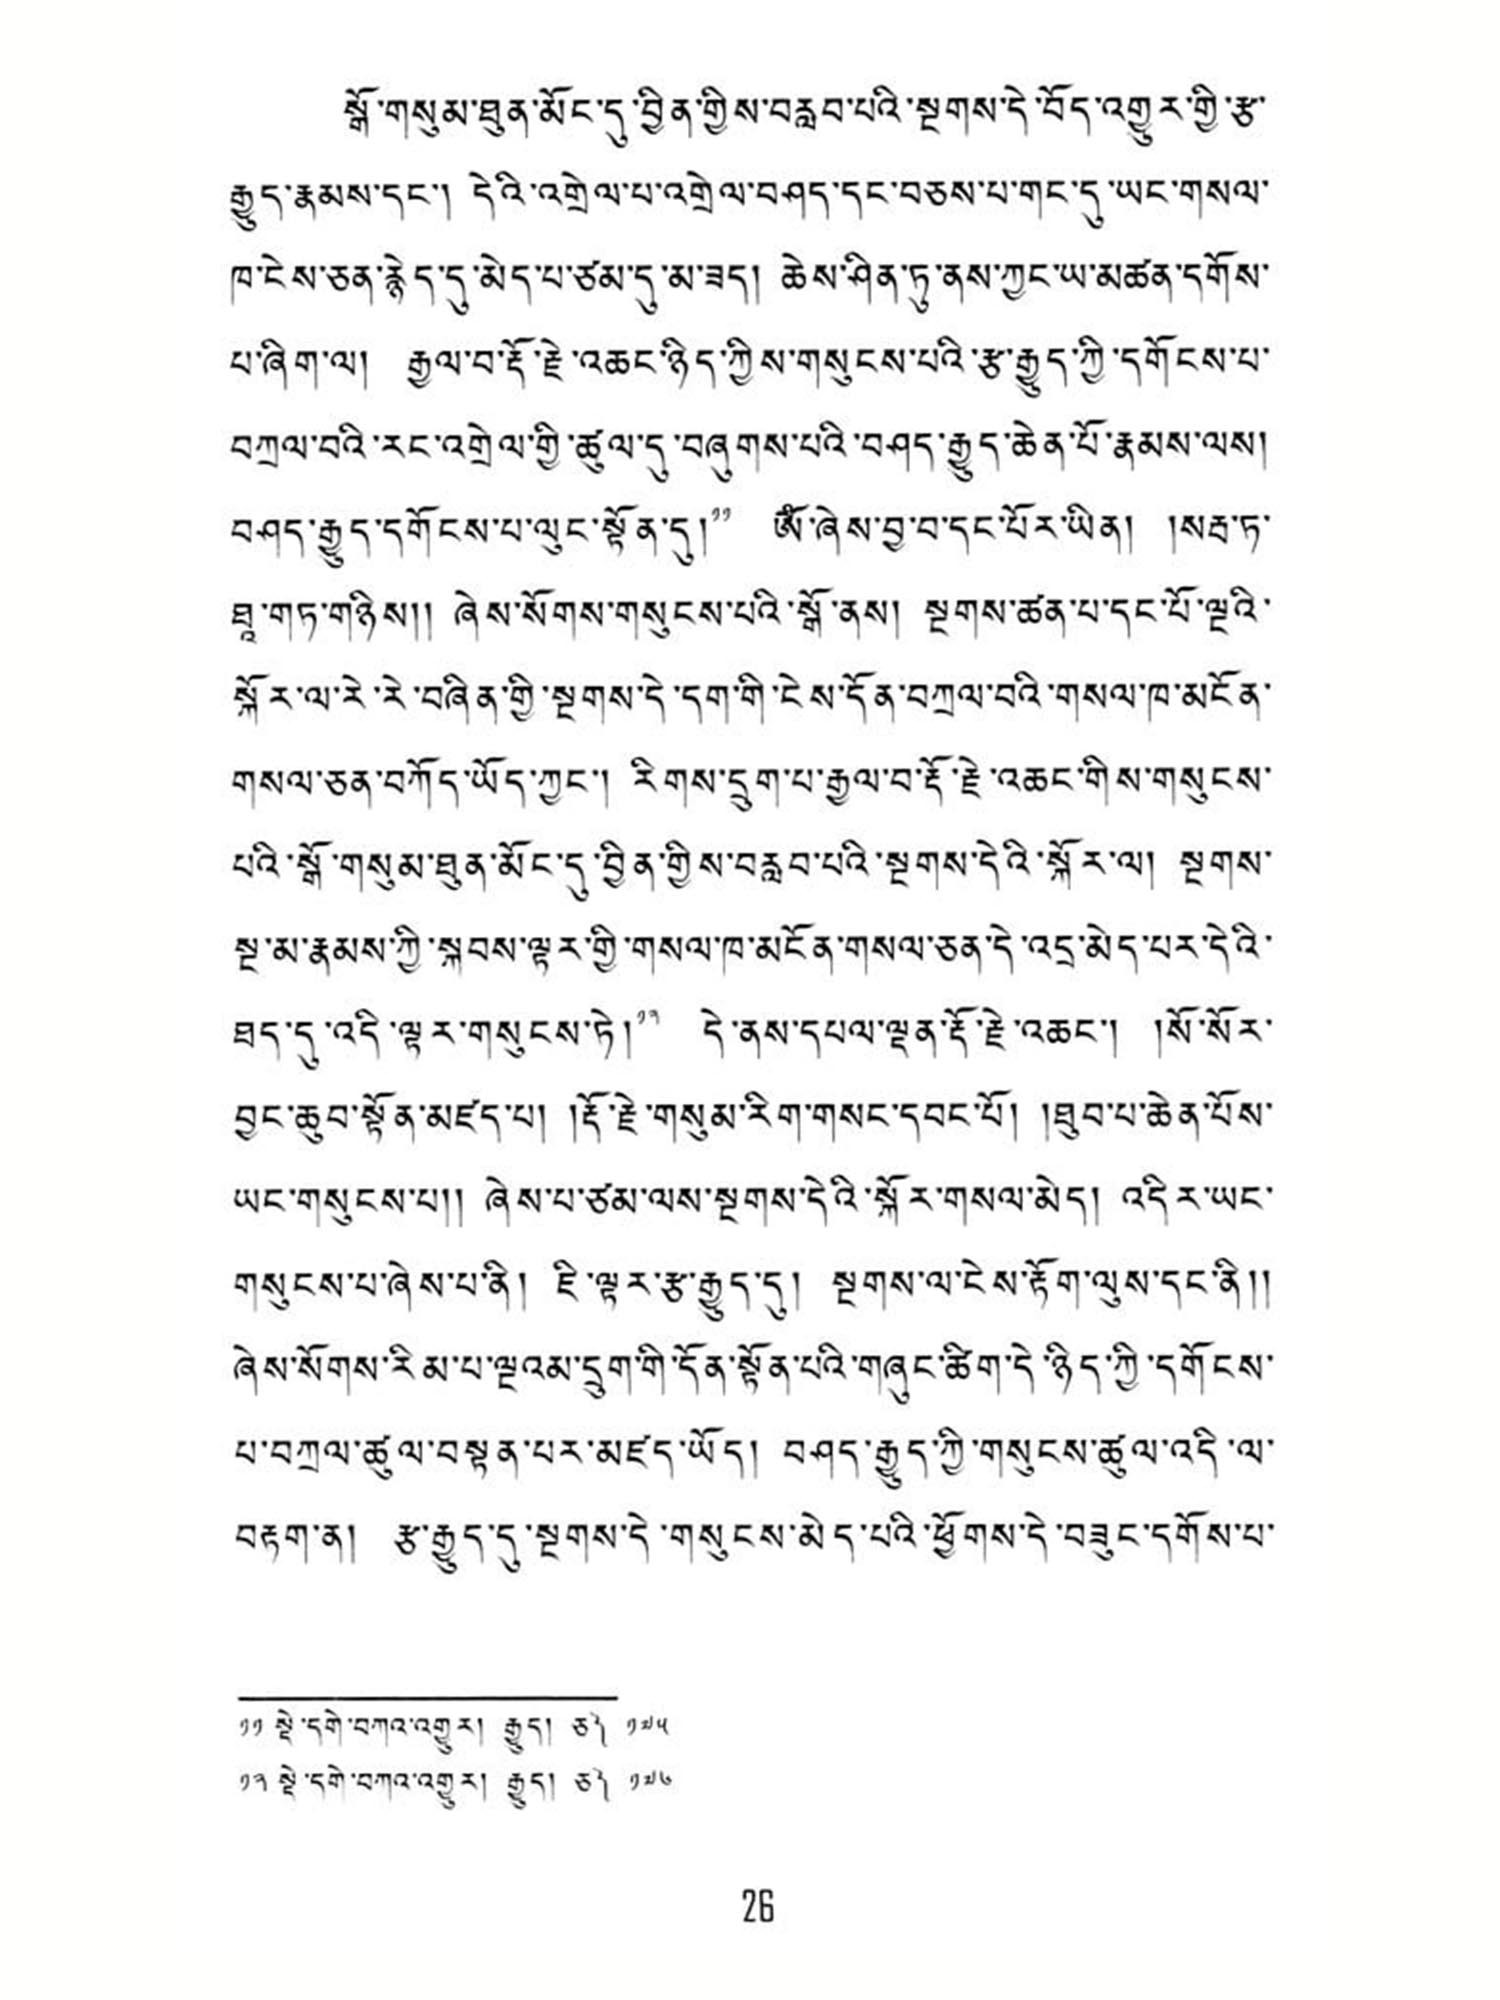 སྒོ་གསུམ་ཐུན་མོང་དུ་བྱིན་གྱིས་བརླབ་པའི་སྔགས་དེ་བོད་འགྱུར་གྱི་རྩ་
རྒྱུད་རྣམས་དང་། དེའི་འགྲེལ་པ་འགྲེལ་བཤད་དང་བཅས་པ་གང་དུ་ཡང་གསལ་
ཁ་ངེས་ཅན་རྙེད་དུ་མེད་པ་ཙམ་དུ་མ་ཟད། ཆེས་ཤིན་ཏུ་ནས་ཀྱང་ཡ་མཚན་དགོས་
པ་ཞིག་ལ། རྒྱལ་བ་རྡོ་རྗེ་འཆང་ཉིད་ཀྱིས་གསུངས་པའི་རྩ་རྒྱུད་ཀྱི་དགོངས་པ་
བཀྲལ་བའི་རང་འགྲེལ་གྱི་ཚུལ་དུ་བཞུགས་པའི་བཤད་རྒྱུད་ཆེན་པོ་རྣམས་ལས།
བཤད་རྒྱུད་དགོངས་པ་ལུང་སྟོན་དུ།༡༡ ཨོཾ་ཞེས་བྱ་བ་དང་པོར་ཡིན། །སརྦ་ཏ་
ཐཱ་གཏ་གཉིས།། ཞེས་སོགས་གསུངས་པའི་སྒོ་ནས། སྔགས་ཚན་པ་དང་པོ་ལྔའི་
སྐོར་ལ་རེ་རེ་བཞིན་གྱི་སྔགས་དེ་དག་གི་ངེས་དོན་བཀྲལ་བའི་གསལ་ཁ་མངོན་
གསལ་ཅན་བཀོད་ཡོད་ཀྱང་། རིགས་དྲུག་པ་རྒྱལ་བ་རྡོ་རྗེ་འཆང་གིས་གསུངས་
པའི་སྒོ་གསུམ་ཐུན་མོང་དུ་བྱིན་གྱིས་བརླབ་པའི་སྔགས་དེའི་སྐོར་ལ། སྔགས་
སྔ་མ་རྣམས་ཀྱི་སྐབས་ལྟར་གྱི་གསལ་ཁ་མངོན་གསལ་ཅན་དེ་འདྲ་མེད་པར་དེའི་
ཐད་དུ་འདི་ལྟར་གསུངས་ཏེ།༡༢ དེ་ནས་དཔལ་ལྡན་རྡོ་རྗེ་འཆང་། །སོ་སོར་
བྱང་ཆུབ་སྟོན་མཛད་པ། །རྡོ་རྗེ་གསུམ་རིག་གསང་དབང་པོ། །ཐུབ་པ་ཆེན་པོས་
ཡང་གསུངས་པ།། ཞེས་པ་ཙམ་ལས་སྔགས་དེའི་སྐོར་གསལ་མེད། འདིར་ཡང་
གསུངས་པ་ཞེས་པ་ནི། ཇི་ལྟར་རྩ་རྒྱུད་དུ། སྔགས་ལ་ངེས་རྟོག་ལུས་དང་ནི།།
ཞེས་སོགས་རིམ་པ་ལྔའམ་དྲུག་གི་དོན་སྟོན་པའི་གཞུང་ཚིག་དེ་ཉིད་ཀྱི་དགོངས་
པ་བཀྲལ་ཚུལ་བསྟན་པར་མཛད་ཡོད། བཤད་རྒྱུད་ཀྱི་གསུངས་ཚུལ་འདི་ལ་
བརྟག་ན། རྩ་རྒྱུད་དུ་སྔགས་དེ་གསུངས་མེད་པའི་ཕྱོགས་དེ་བཟུང་དགོས་པ་
༡༡ སྡེ་དགེ་བཀའ་འགྱུར། རྒྱུད། ཅ༽ ༡༧༥
༡༢ སྡེ་དགེ་བཀའ་འགྱུར། རྒྱུད། ཅ༽ ༡༧༦
26